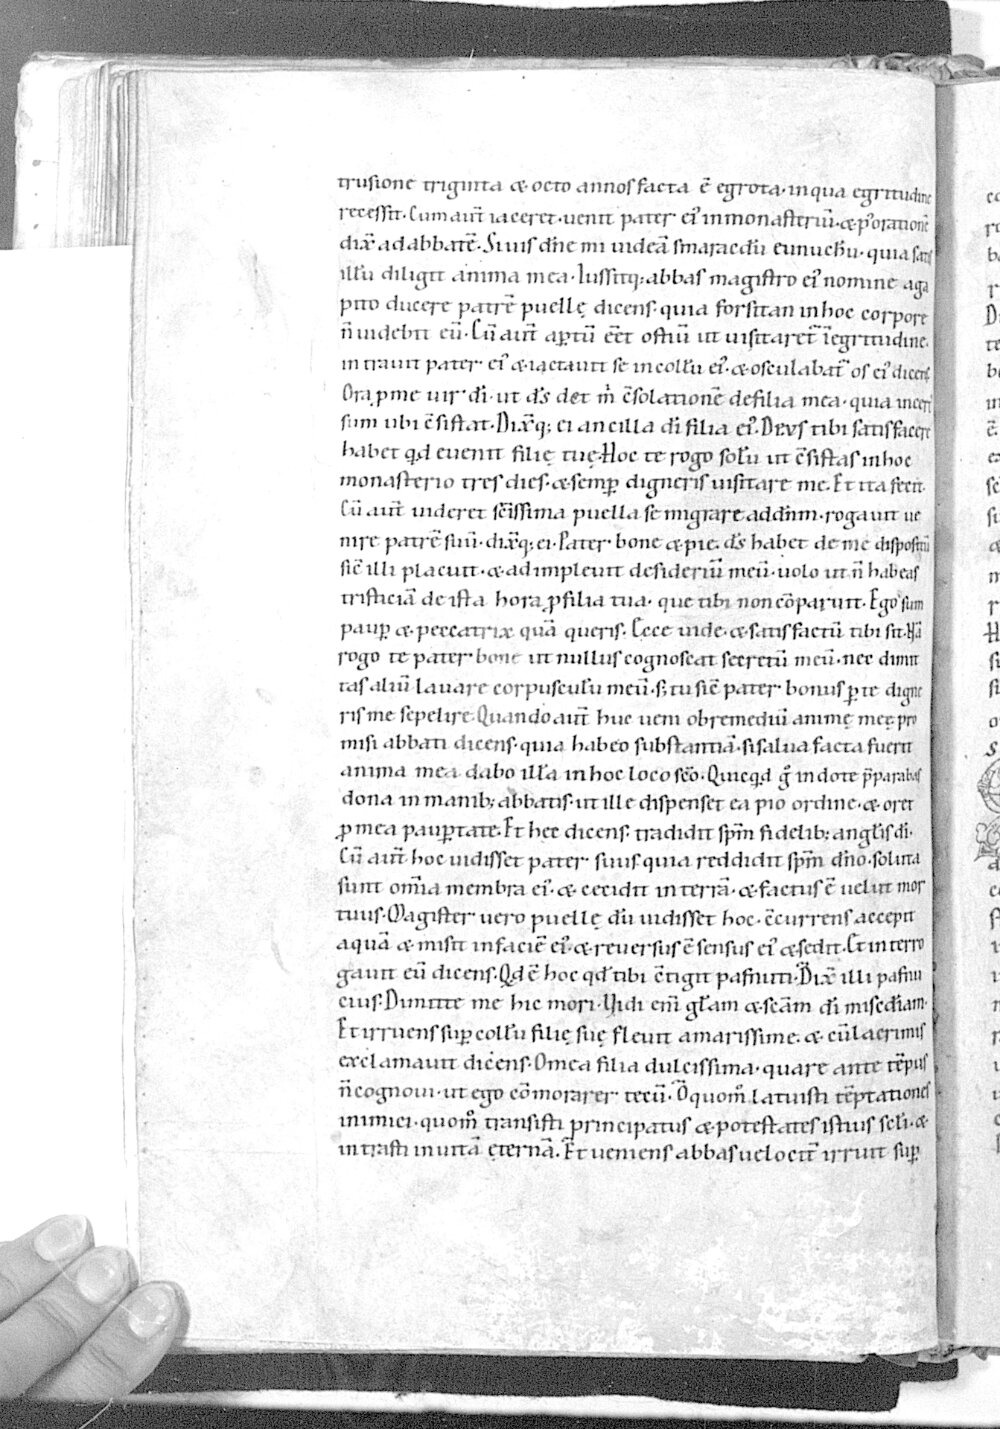 trusione triginta & octo annos facta ē egrota· in qua egritudine
recessit. Cum aut̄ iaceret· uenit pater ei᾿ in monasteriū· & p᾿ orationē
dix̄ ad abbatē. Si uis dn̄e mi uideā smaracdū eunuchū· quia satis
illū diligit anima mea· Iussitq; abbas magistro ei᾿ nomine aga
pito ducere patrē puellę dicens· quia forsitan in hoc corpore
n̄ uidebit eū. Cū aut̄ aptū eēt ostiū ut uisitaret̄ ī egritudine·
intrauit pater ei᾿ & iactauit se in collū ei᾿· & osculabat̄ os ei᾿ dicens
Ora ꝓ me uir dī· ut ds̄ det m̄ c̄solationē de filia mea· quia incert᾿
sum ubi c̄sistat. Dix̄q; ei ancilla dī filia ei᾿. Deus tibi satisfacere
habet qd euenit filię tuę. Hoc te rogo solū ut c̄sistas in hoc
monasterio tres dies· & semꝑ digneris uisitare me. Et ita fecit.
Cū aut̄ uideret sc̄issima puella se migrare ad dn̄m· rogauit ue
nire patrē suū· dix̄q; ei. Pater bone & pie· ds̄ habet de me dispositū
sic̄ illi placuit· & adimpleuit desideriū meū· uolo ut n̄ habeas
tristiciā de ista hora ꝓ filia tua· que tibi non cōparuit. Ego sum
pauꝑ & peccatrix quā queris. Ecce uide· & satisfactū tibi sit. Hā
rogo te pater bone ut nullus cognoscat secretū meū· nec dimit
tas aliū lauare corpusculū meū· s; tu sic̄ pater bonus ꝑ te digne
ris me sepelire. Quando aut̄ huc ueni ob remediū animę meę pro
misi abbati dicens· quia habeo substantiā· si salua facta fuerit
anima mea dabo illā in hoc loco sc̄o. Quicqd g̊ in dote p̄parabas
dona in manib; abbatis· ut ille dispenset ea pio ordine· & oret
ꝓ mea pauꝑtate. Et hec dicens· tradidit sp̄m fidelib; angl̄is dī·
Cū aut̄ hoc uidisset pater suus quia reddidit sp̄m dn̄o· soluta
sunt om̄ia membra ei᾿· & cecidit in terrā· & factus ē uelut mor
tuus. Magister uero puellę dū uidisset hoc· c̄currens accepit
aquā & misit in faciē ei᾿· & reuersus ē sensus ei᾿ & sedit. Et interro
gauit eū dicens. Qd ē hoc qd tibi c̄tigit pafnuti. Dix̄ illi pafnu
cius. Dimitte me hic mori. Uidi eni᾿ gl̄am & sc̄am dī misc̄diam·
Et irruens suꝑ collū filię suę fleuit amarissime· & cū lacrimis
exclamauit dicens. O mea filia dulcissima· quare ante tēpus
n̄ cognoui· ut ego cōmorarer tecū. O quom̊ latuisti tēptationes
inimici· quom̊ transisti principatus & potestates istius sc̄li· &
intrasti in uitā eternā. Et ueniens abbas uelocit̄ irruit suꝑ